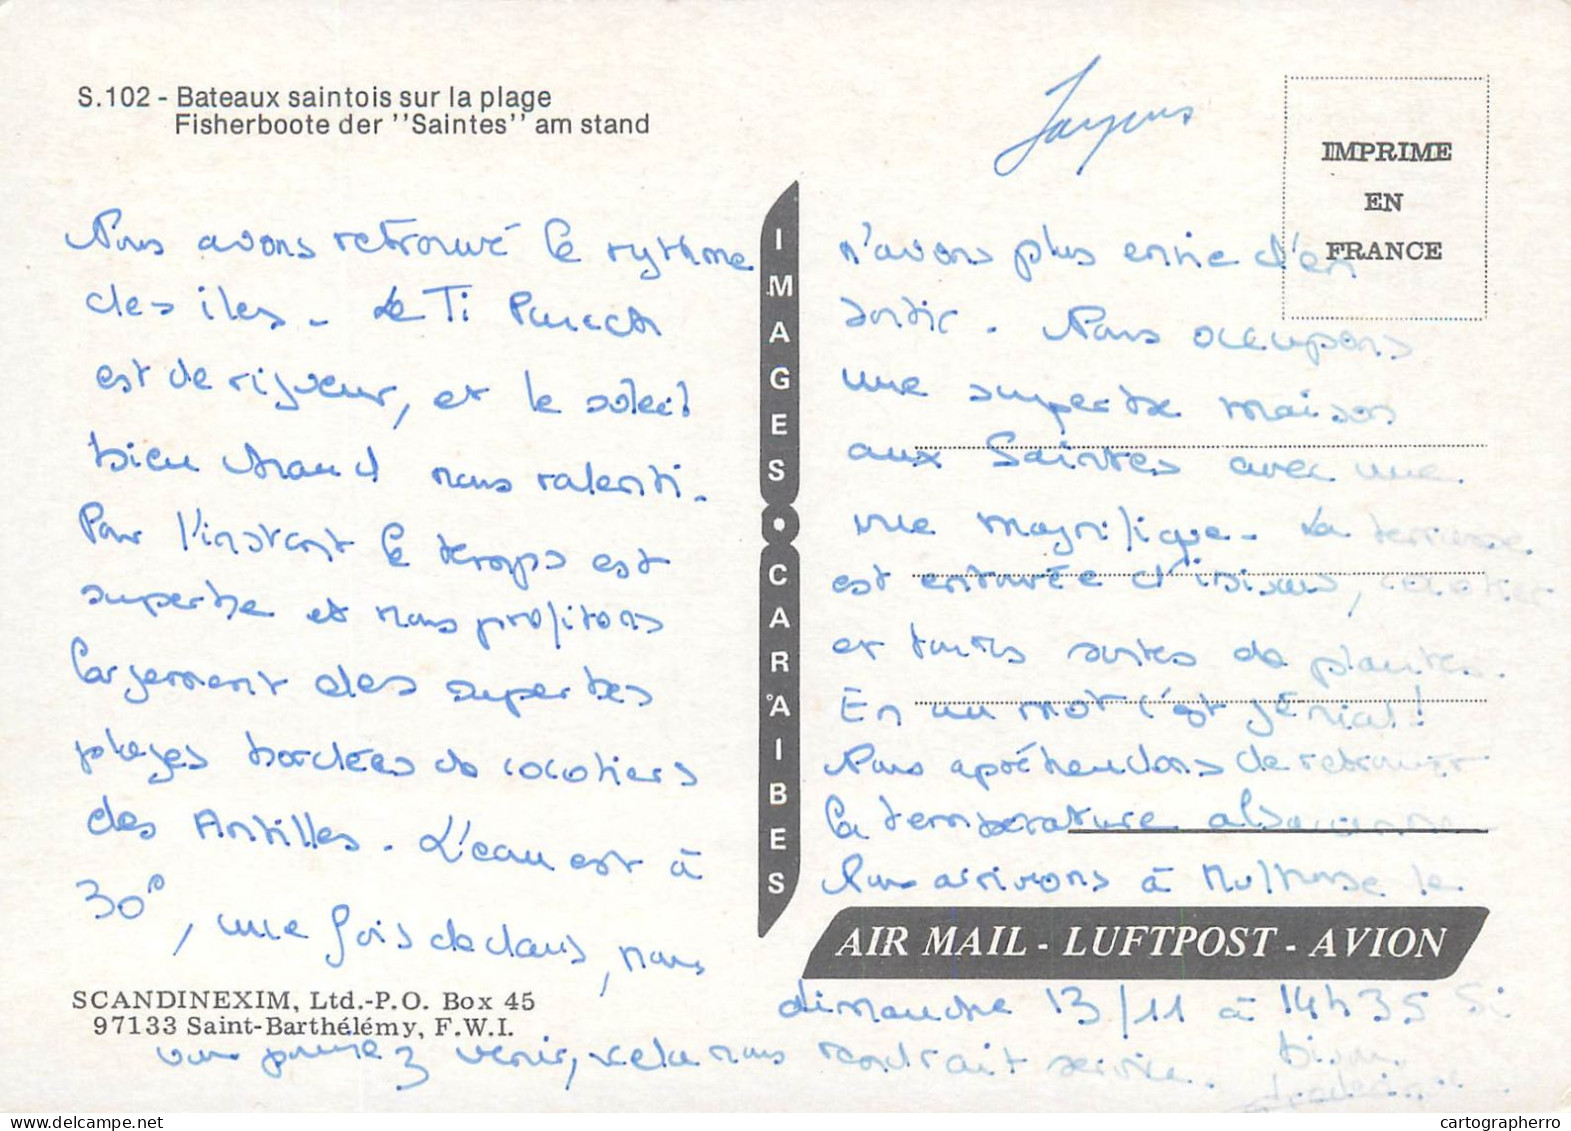 S.102 - Bateaux saintois sur la plage
Fisherboote der ''Saintes'' am stand
Nous avons retrouvé le rythme
des iles - Le Ti Punch
est de rigueur, et le soleil
bien chaud nous ralenti.
Pour l'instant le temps est
superbe et nous profitons
largement des superbes
plages bordées de cocotiers
des Antilles. L'eau est à
30°, une fois dedans, nous
SCANDINEXIM, Ltd.-P.O. Box 45
97133 Saint-Barthélémy, F.W.I.
IMAGES CARAIBES
Jacques
IMPRIME
EN
FRANCE
n'avons plus envie d'en
sortir. Nous occupons
une superbe maison
aux Saintes avec une
vue magnifique. La terrasse
est entourée d'ibiscus, cocotier
et toutes sortes de plantes.
En un mot c'est génial!
Nous appréhendons de retrouver
la température alsacienne
Nous arrivons à Mulhouse le
AIR MAIL - LUFTPOST - AVION
dimanche 13/11 à 14h35 Si
vous pouvez venir, cela nous rendrait service. Bisous
cartographerro